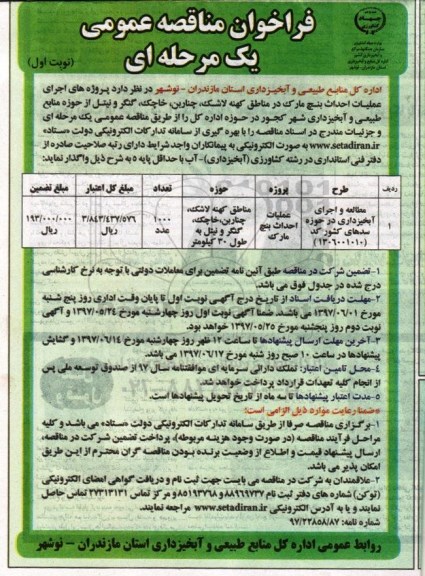 فراخوان مناقصه عمومی
یک مرحله ای
(نوبت اول)
اداره کل منابع طبیعی و آبخیزداری استان مازندران - نوشهر در نظر دارد پروژه های اجرای
عملیات احداث بنچ مارک در مناطق کهنه لاشک، چنارین، خاچک، گنگر و نیتل از حوزه منابع
طبیعی و آبخیزداری شهر کجور در حوزه اداره کل را از طریق مناقصه عمومی یک مرحله ای
و جزئیات مندرج در اسناد مناقصه را با بهره گیری از سامانه تدارکات الکترونیکی دولت «ستاد»
www.setadiran.ir به صورت الکترونیکی به پیمانکاران واجد شرایط دارای رتبه صلاحیت صادره از
دفتر فنی استانداری در رشته کشاورزی (آبخیزداری)- آب با حداقل پایه ۵ به شرح ذیل واگذار نماید:
ردیف طرح پروژه حوزه تعداد مبلغ کل اعتبار مبلغ تضمین
۱ مطالعه و اجرای آبخیزداری در حوزه سدهای کشور کد (۱۳۰۶۰۰۱۰۱۰) عملیات احداث بنچ مارک مناطق کهنه لاشک، چنارین، خاچک، گنگر و نیتل به طول ۳۰ کیلومتر ۱۰۰۰ عدد ۳/۸۴۳/۴۳۷/۵۷۶ ریال ۱۹۳/۰۰۰/۰۰۰ ریال
۱-تضمین شرکت در مناقصه طبق آئین نامه تضمین برای معاملات دولتی با توجه به نرخ کارشناسی
درج شده در جدول فوق می باشد.
۲-مهلت دریافت اسناد از تاریخ درج آگهی نوبت اول تا پایان وقت اداری روز پنج شنبه
مورخ ۱۳۹۷/۰۶/۰۱ می باشد. ضمنا آگهی نوبت اول روز چهارشنبه مورخ ۱۳۹۷/۰۵/۲۴ و آگهی
نوبت دوم روز پنجشنبه مورخ ۱۳۹۷/۰۵/۲۵ خواهد بود.
۳-آخرین مهلت ارسال پیشنهادها تا ساعت ۱۲ ظهر روز چهارشنبه مورخ ۱۳۹۷/۰۶/۱۴ و گشایش
پیشنهادها در ساعت ۱۰ صبح روز شنبه مورخ ۱۳۹۷/۰۶/۱۷ می باشد.
۴-محل تامین اعتبار: تملک دارائی سرمایه ای موافقتنامه سال ۹۷ از صندوق توسعه ملی پس
از انجام کلیه تعهدات قرارداد پرداخت خواهد شد.
۵-مدت اعتبار پیشنهادها تا سه ماه از تاریخ تحویل پیشنهادها است.
ضمنا رعایت موارد ذیل الزامی است:
۱-برگزاری مناقصه صرفا از طریق سامانه تدارکات الکترونیکی دولت «ستاد» می باشد و کلیه
مراحل فرآیند مناقصه (در صورت وجود هزینه مربوطه)، پرداخت تضمین شرکت در مناقصه،
ارسال پیشنهاد قیمت و اطلاع از وضعیت برنده بودن مناقصه گران محترم از این طریق
امکان پذیر می باشد.
۲-علاقمندان به شرکت در مناقصه می بایست جهت ثبت نام و دریافت گواهی امضای الکترونیکی
(توکن) شماره های دفتر ثبت نام ۸۸۹۶۹۷۳۷ و ۸۵۱۹۳۷۶۸ و مرکز تماس ۲۷۳۱۳۱۳۱ تماس حاصل
نمایند و یا به آدرس الکترونیکی www.setadiran.ir مراجعه نمایند.
شماره نامه: ۹۷/۲۲۸۵۸/۸۷
روابط عمومی اداره کل منابع طبیعی و آبخیزداری استان مازندران - نوشهر